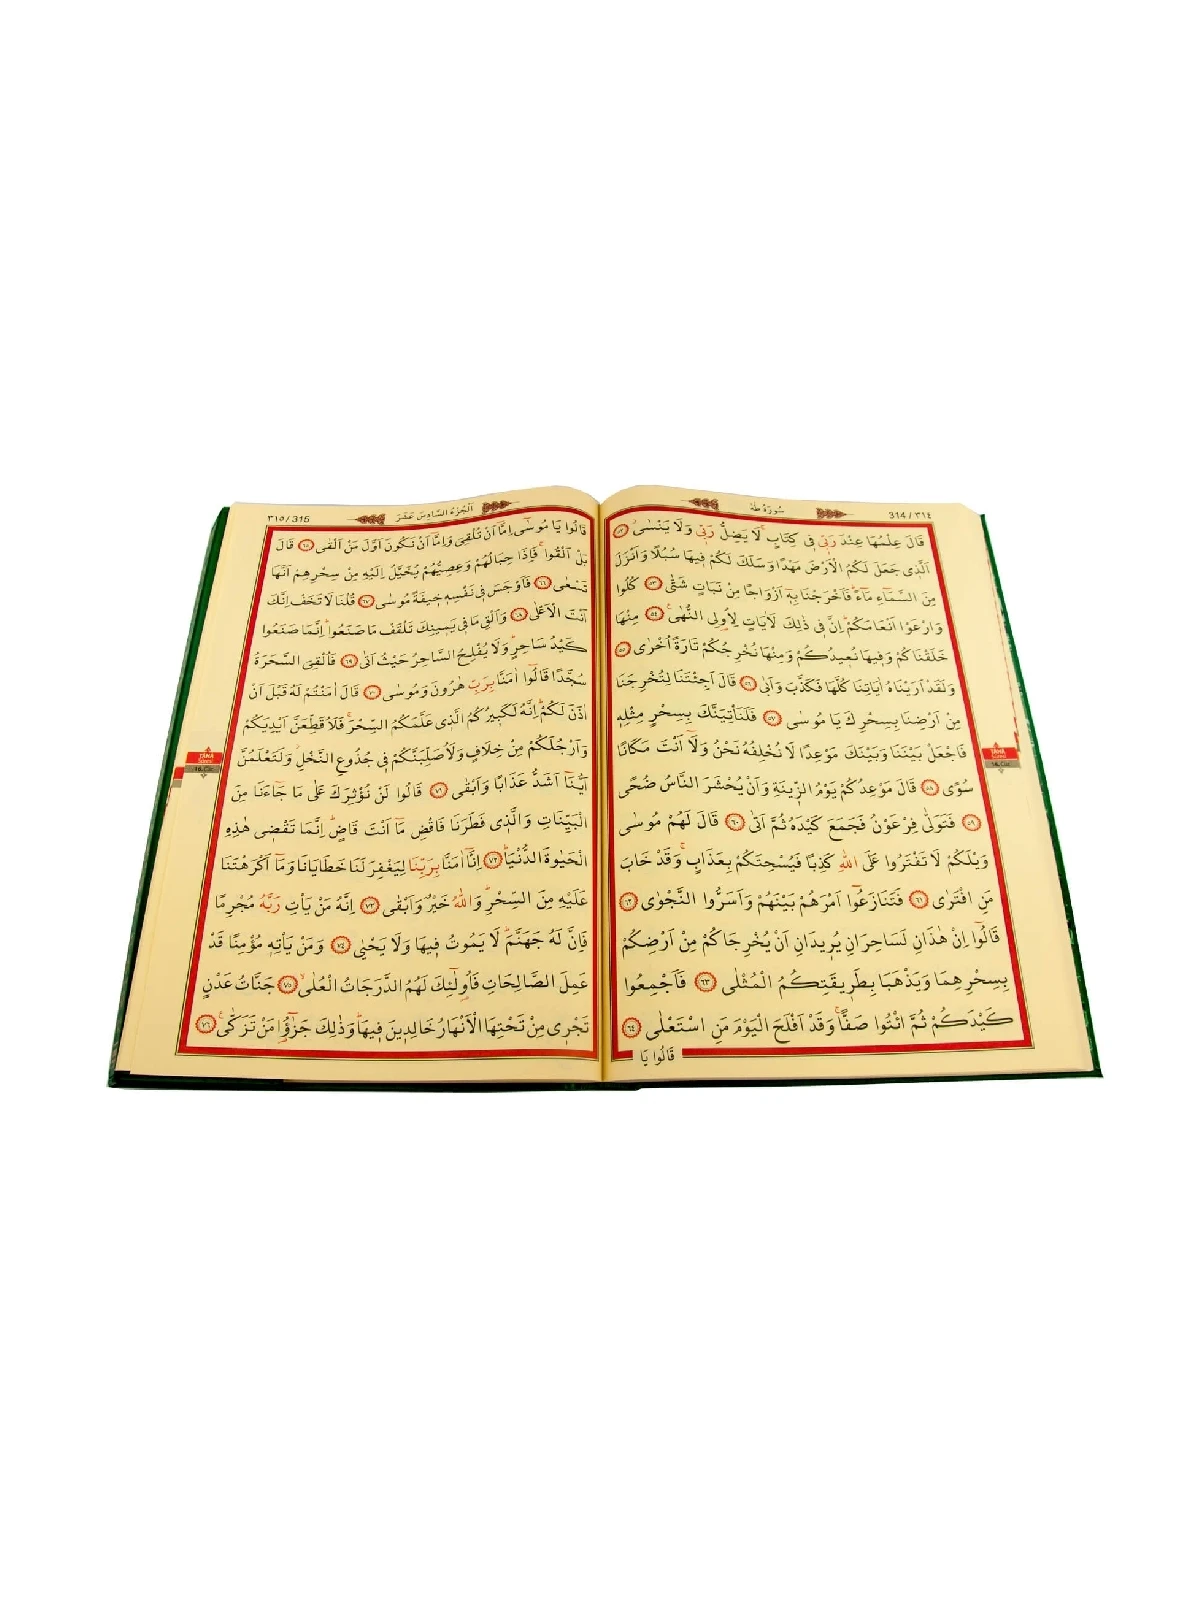 314 / ٣١٤
سُورَةُ طٰهٰ
قَالَ عِلْمُهَا عِنْدَ رَبّٖى فٖى كِتَابٍۚ لَا يَضِلُّ رَبّٖى وَلَا يَنْسٰىۘ ﴿٥٢﴾
اَلَّذٖى جَعَلَ لَكُمُ الْاَرْضَ مَهْدًا وَسَلَكَ لَكُمْ فٖيهَا سُبُلًا وَاَنْزَلَ
مِنَ السَّمَٓاءِ مَٓاءًۜ فَاَخْرَجْنَا بِهٖٓ اَزْوَاجًا مِنْ نَبَاتٍ شَتّٰى ﴿٥٣﴾ كُلُوا
وَارْعَوْا اَنْعَامَكُمْۜ اِنَّ فٖى ذٰلِكَ لَاٰيَاتٍ لِاُو۬لِى النُّهٰى۟ ﴿٥٤﴾ مِنْهَا
خَلَقْنَاكُمْ وَفٖيهَا نُعٖيدُكُمْ وَمِنْهَا نُخْرِجُكُمْ تَارَةً اُخْرٰى ﴿٥٥﴾
وَلَقَدْ اَرَيْنَاهُ اٰيَاتِنَا كُلَّهَا فَكَذَّبَ وَاَبٰى ﴿٥٦﴾ قَالَ اَجِئْتَنَا لِتُخْرِجَنَا
مِنْ اَرْضِنَا بِسِحْرِكَ يَا مُوسٰى ﴿٥٧﴾ فَلَنَأْتِيَنَّكَ بِسِحْرٍ مِثْلِهٖ
فَاجْعَلْ بَيْنَنَا وَبَيْنَكَ مَوْعِدًا لَا نُخْلِفُهُ نَحْنُ وَلَٓا اَنْتَ مَكَانًا
سُوًى ﴿٥٨﴾ قَالَ مَوْعِدُكُمْ يَوْمُ الزّٖينَةِ وَاَنْ يُحْشَرَ النَّاسُ ضُحًى
﴿٥٩﴾ فَتَوَلّٰى فِرْعَوْنُ فَجَمَعَ كَيْدَهُ ثُمَّ اَتٰى ﴿٦٠﴾ قَالَ لَهُمْ مُوسٰى
وَيْلَكُمْ لَا تَفْتَرُوا عَلَى اللّٰهِ كَذِبًا فَيُسْحِتَكُمْ بِعَذَابٍۚ وَقَدْ خَابَ
مَنِ افْتَرٰى ﴿٦١﴾ فَتَنَازَعُٓوا اَمْرَهُمْ بَيْنَهُمْ وَاَسَرُّوا النَّجْوٰى ﴿٦٢﴾
قَالُٓوا اِنْ هٰذَانِ لَسَاحِرَانِ يُرٖيدَانِ اَنْ يُخْرِجَاكُمْ مِنْ اَرْضِكُمْ
بِسِحْرِهِمَا وَيَذْهَبَا بِطَرٖيقَتِكُمُ الْمُثْلٰى ﴿٦٣﴾ فَاَجْمِعُوا
كَيْدَكُمْ ثُمَّ ائْتُوا صَفًّاۚ وَقَدْ اَفْلَحَ الْيَوْمَ مَنِ اسْتَعْلٰى ﴿٦٤﴾
قَالُوا يَا
TÂHÂ
Sûresi
16. Cüz
اَلْجُزْءُ السَّادِسَ عَشَرَ
٣١٥ / 315
قَالُوا يَا مُوسٰٓى اِمَّٓا اَنْ تُلْقِىَ وَاِمَّٓا اَنْ نَكُونَ اَوَّلَ مَنْ اَلْقٰى ﴿٦٥﴾ قَالَ
بَلْ اَلْقُواۚ فَاِذَا حِبَالُهُمْ وَعِصِيُّهُمْ يُخَيَّلُ اِلَيْهِ مِنْ سِحْرِهِمْ اَنَّهَا
تَسْعٰى ﴿٦٦﴾ فَاَوْجَسَ فٖى نَفْسِهٖ خٖيفَةً مُوسٰى ﴿٦٧﴾ قُلْنَا لَا تَخَفْ اِنَّكَ
اَنْتَ الْاَعْلٰى ﴿٦٨﴾ وَاَلْقِ مَا فٖى يَمٖينِكَ تَلْقَفْ مَا صَنَعُواۜ اِنَّمَا صَنَعُوا
كَيْدُ سَاحِرٍۜ وَلَا يُفْلِحُ السَّاحِرُ حَيْثُ اَتٰى ﴿٦٩﴾ فَاُلْقِىَ السَّحَرَةُ
سُجَّدًا قَالُٓوا اٰمَنَّا بِرَبِّ هٰرُونَ وَمُوسٰى ﴿٧٠﴾ قَالَ اٰمَنْتُمْ لَهُ قَبْلَ اَنْ
اٰذَنَ لَكُمْۜ اِنَّهُ لَكَبٖيرُكُمُ الَّذٖى عَلَّمَكُمُ السِّحْرَۚ فَلَاُقَطِّعَنَّ اَيْدِيَكُمْ
وَاَرْجُلَكُمْ مِنْ خِلَافٍ وَلَاُصَلِّبَنَّكُمْ فٖى جُذُوعِ النَّخْلِۘ وَلَتَعْلَمُنَّ
اَيُّنَٓا اَشَدُّ عَذَابًا وَاَبْقٰى ﴿٧١﴾ قَالُوا لَنْ نُؤْثِرَكَ عَلٰى مَا جَٓاءَنَا مِنَ
الْبَيِّنَاتِ وَالَّذٖى فَطَرَنَا فَاقْضِ مَٓا اَنْتَ قَاضٍۜ اِنَّمَا تَقْضٖى هٰذِهِ
الْحَيٰوةَ الدُّنْيَاۜ ﴿٧٢﴾ اِنَّٓا اٰمَنَّا بِرَبِّنَا لِيَغْفِرَ لَنَا خَطَايَانَا وَمَٓا اَكْرَهْتَنَا
عَلَيْهِ مِنَ السِّحْرِۜ وَاللّٰهُ خَيْرٌ وَاَبْقٰى ﴿٧٣﴾ اِنَّهُ مَنْ يَأْتِ رَبَّهُ مُجْرِمًا
فَاِنَّ لَهُ جَهَنَّمَۜ لَا يَمُوتُ فٖيهَا وَلَا يَحْيٰى ﴿٧٤﴾ وَمَنْ يَأْتِهٖ مُؤْمِنًا قَدْ
عَمِلَ الصَّالِحَاتِ فَاُو۬لٰٓئِكَ لَهُمُ الدَّرَجَاتُ الْعُلٰىۙ ﴿٧٥﴾ جَنَّاتُ عَدْنٍ
تَجْرٖى مِنْ تَحْتِهَا الْاَنْهَارُ خَالِدٖينَ فٖيهَاۜ وَذٰلِكَ جَزٰٓؤُا مَنْ تَزَكّٰى۟ ﴿٧٦﴾
TÂHÂ
Sûresi
16. Cüz